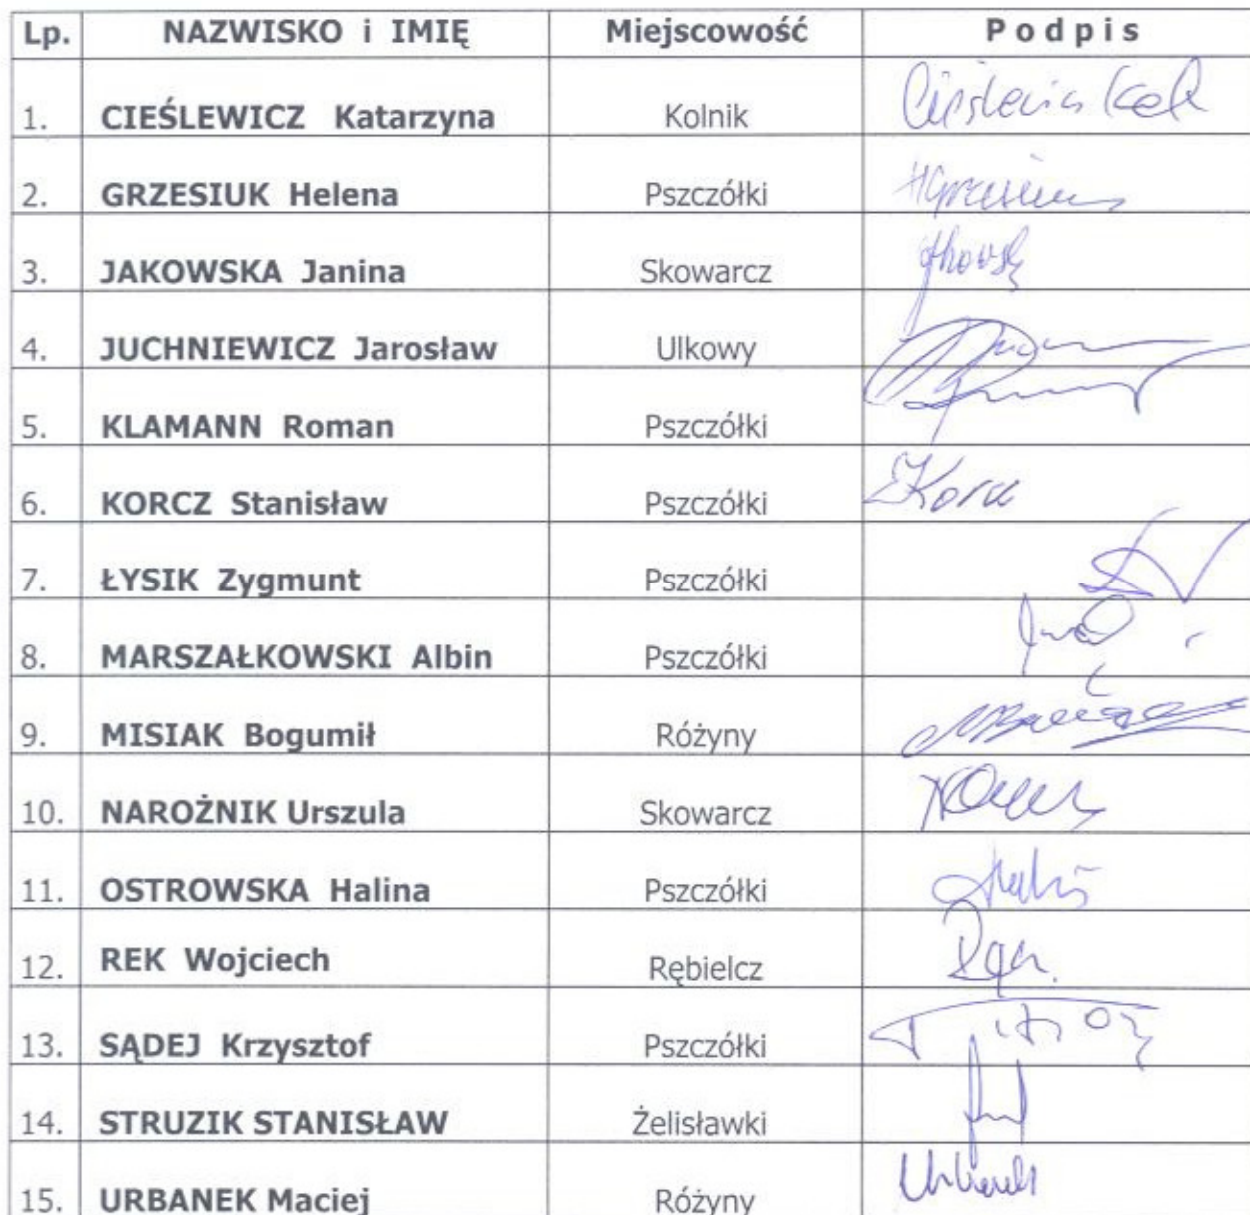 Lp. NAZWISKO i IMIĘ Miejscowość Podpis
1. CIEŚLEWICZ Katarzyna Kolnik
2. GRZESIUK Helena Pszczółki
3. JAKOWSKA Janina Skowarcz
4. JUCHNIEWICZ Jarosław Ulkowy
5. KLAMANN Roman Pszczółki
6. KORCZ Stanisław Pszczółki
7. ŁYSIK Zygmunt Pszczółki
8. MARSZAŁKOWSKI Albin Pszczółki
9. MISIAK Bogumił Różyny
10. NAROŻNIK Urszula Skowarcz
11. OSTROWSKA Halina Pszczółki
12. REK Wojciech Rębielcz
13. SĄDEJ Krzysztof Pszczółki
14. STRUZIK STANISŁAW Żelisławki
15. URBANEK Maciej Różyny